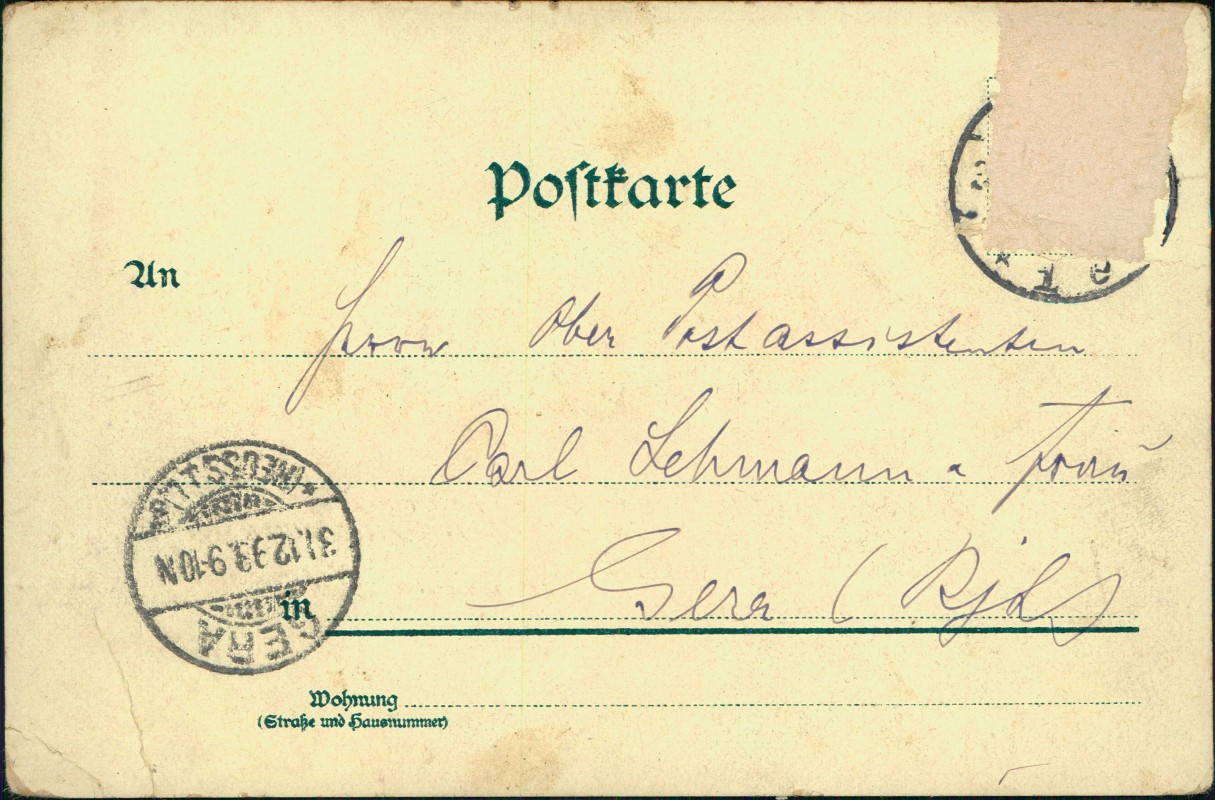 Postkarte
An
Herrn Ober Postassistenten
Carl Lehmann u Frau
in Gera (RjL)
Wohnung
(Straße und Hausnummer)
GERA
31.12.99. 9-10 N
* i e